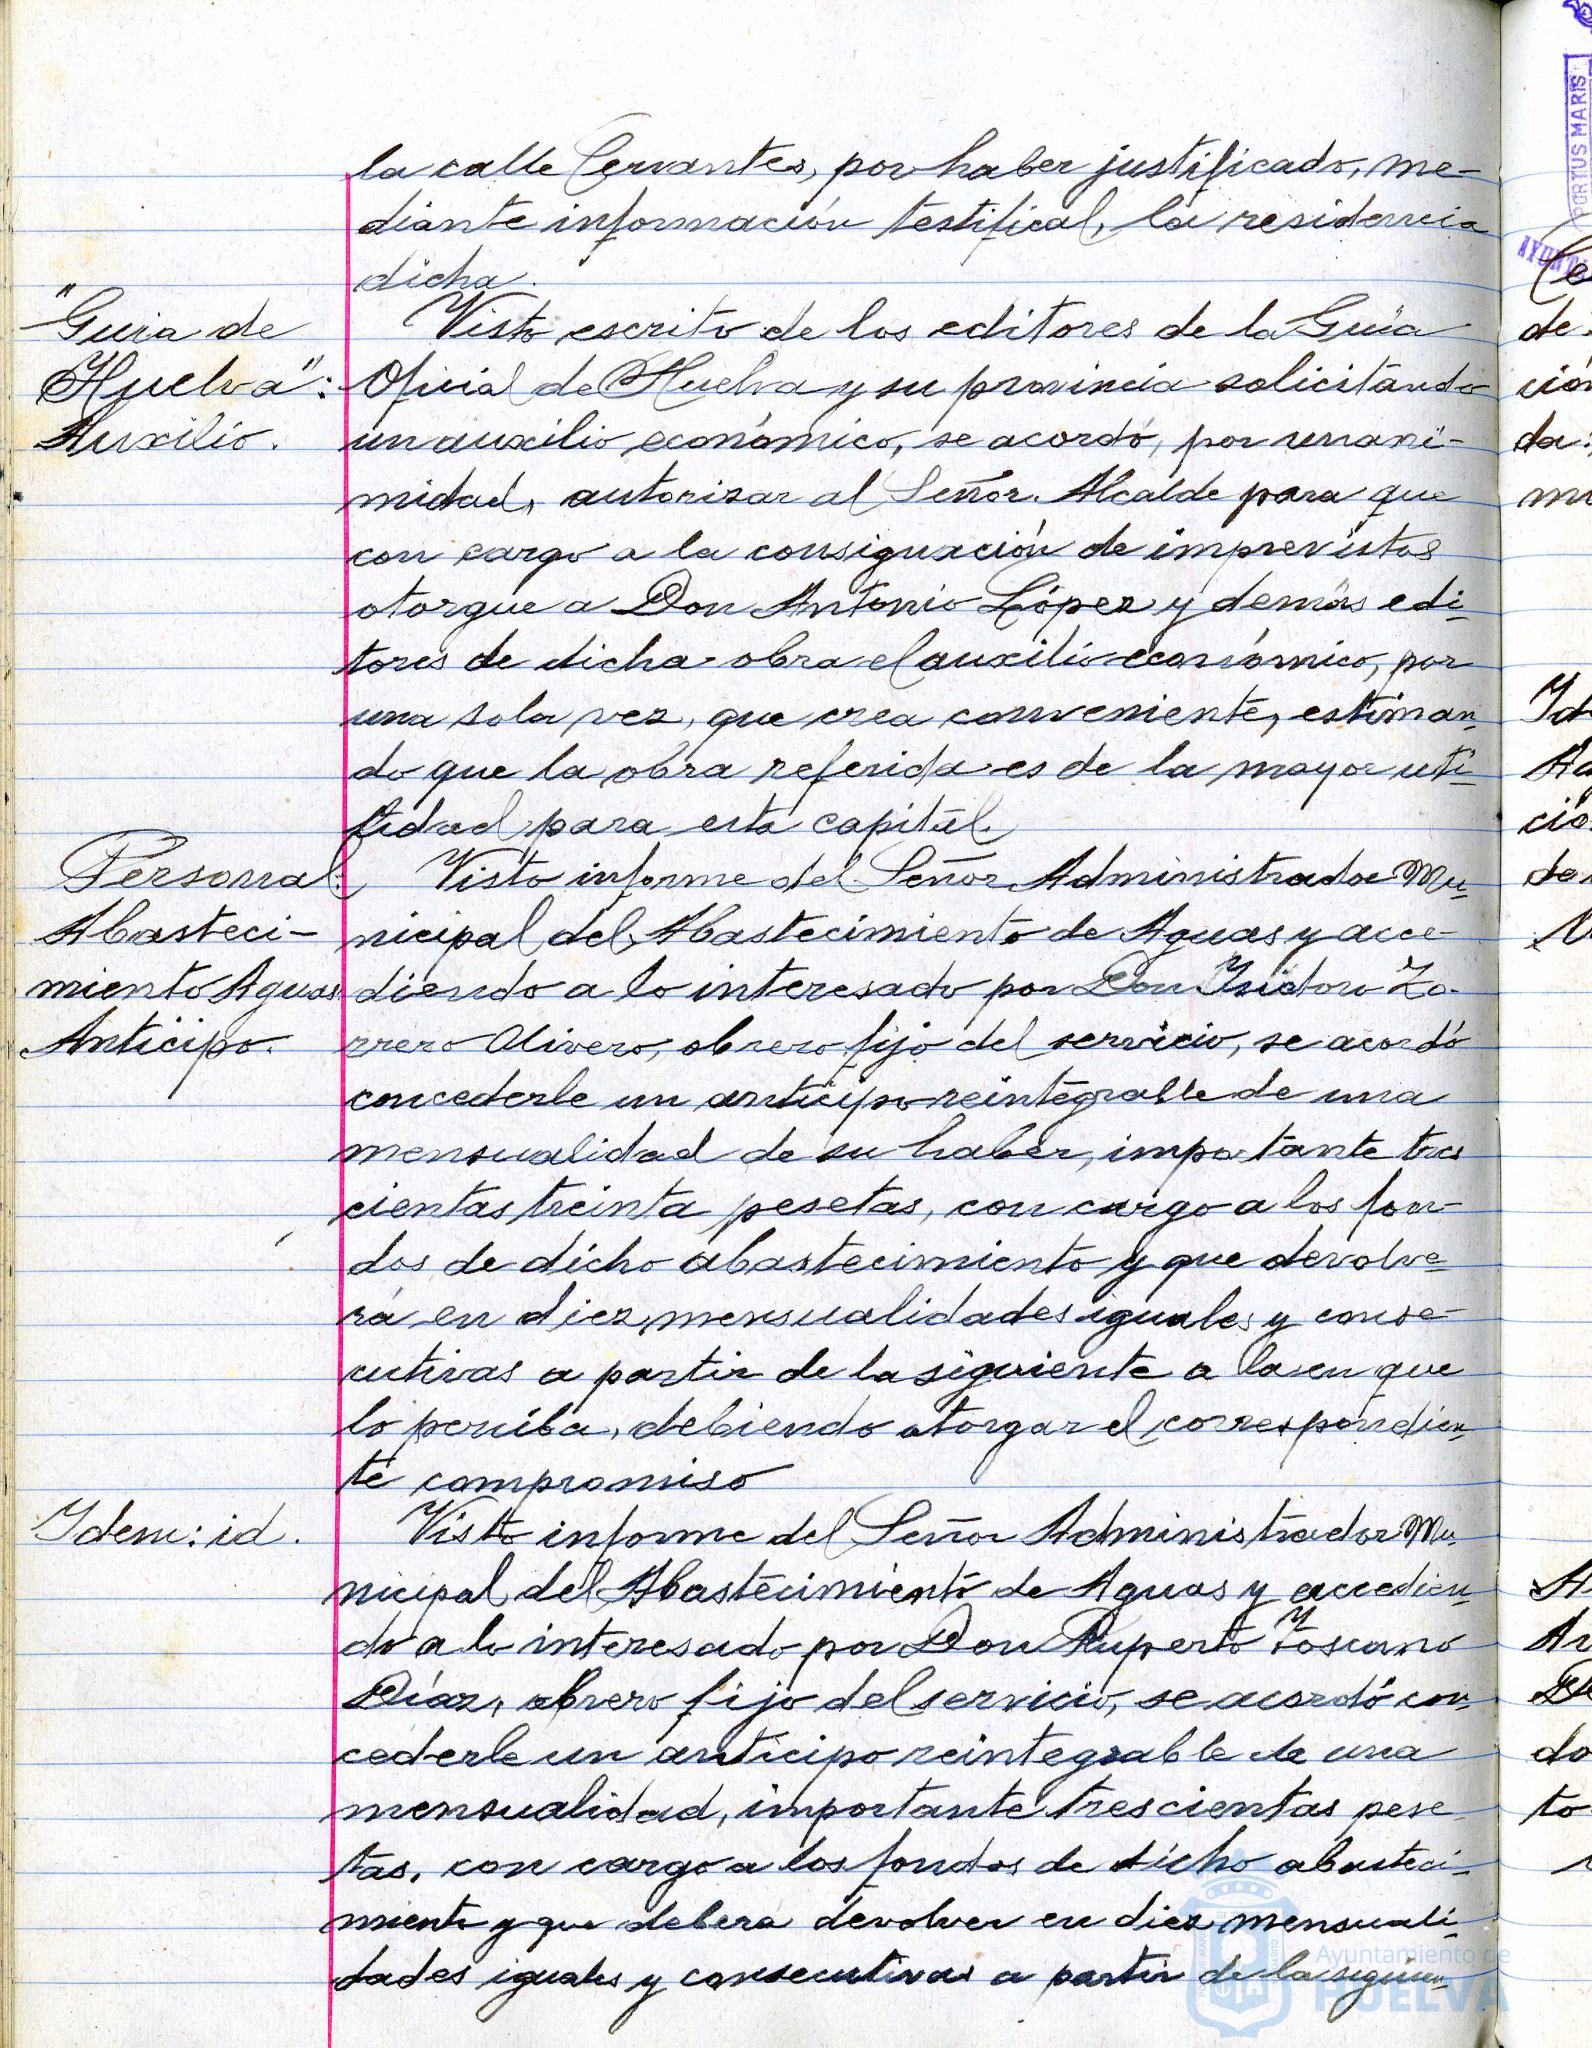 la calle Cervantes, por haber justificado, me-
diante información testifical, la residencia
dicha.
"Guia de
Huelva":
Auxilio.
Visto escrito de los editores de la Guia
Oficial de Huelva y su provincia solicitando
un auxilio económico, se acordó, por unani-
midad, autorizar al Señor Alcalde para que
con cargo a la consignación de imprevistos
otorgue a Don Antonio López y demás edi-
tores de dicha obra el auxilio económico, por
una sola vez, que crea conveniente, estiman-
do que la obra referida es de la mayor uti-
lidad para esta capital.
Personal
Abasteci-
miento Aguas
Anticipo.
Visto informe del Señor Administrador Mu-
nicipal del Abastecimiento de Aguas y acce-
diendo a lo interesado por Don Isidoro Zo-
rrero Olivero, obrero fijo del servicio, se acordó
concederle un anticipo reintegrable de una
mensualidad de su haber, importante tres
cientas treinta pesetas, con cargo a los fon-
dos de dicho abastecimiento y que devolve-
rá en diez mensualidades iguales y conse-
cutivas a partir de la siguiente a la en que
lo perciba, debiendo otorgar el correspondien-
te compromiso
Idem: id.
Visto informe del Señor Administrador Mu-
nicipal del Abastecimiento de Aguas y accedien-
do a lo interesado por Don Ruperto Toscano
Díaz, obrero fijo del servicio, se acordó con-
cederle un anticipo reintegrable de una
mensualidad, importante trescientas pese-
tas, con cargo a los fondos de dicho abasteci-
miento y que debera devolver en diez mensuali-
dades iguales y consecutivas a partir de la siguien-
PORTUS MARIS
de
ción
da:
Ayuntamiento de
HUELVA